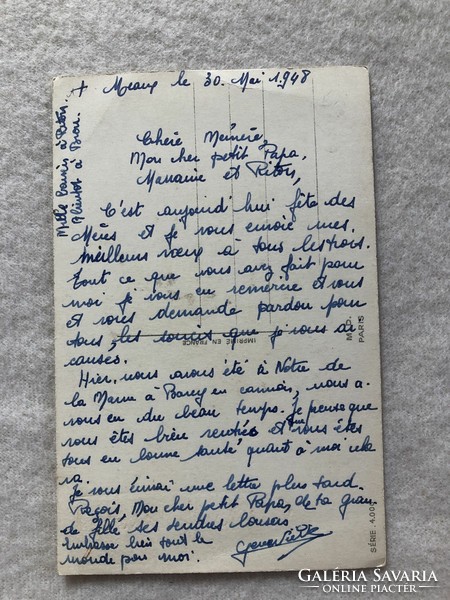 + Meaux le 30 Mai 1948
Chère Mémère,
Mon cher petit Papa,
Maman et Riton,
C'est aujourd'hui fête des
Mères et je vous envoie mes
meilleurs vœux à tous les trois.
Tout ce que vous avez fait pour
moi je vous en remercie et vous
et vous demande pardon pour
tous les soucis que je vous ai
causés.
Hier, nous avons été à Notre de
la Marne à Barcy en camion, nous a-
vons eu du beau temps. Je pense que
vous êtes bien rentrés et que vous êtes
tous en bonne santé quant à moi cela
va.
Je vous écrirai une lettre plus tard.
Reçois, Mon cher petit Papa, de ta gran-
de fille ses tendres baisers
Embrasse bien tout le
monde pour moi.
Geneviève
Mille baisers à Riton.
à bientôt à Bron.
IMPRIMÉ EN FRANCE
M.D.
PARIS
SÉRIE. 4.00
GALÉRIA SAVARIA
ONLINE PIACTÉR